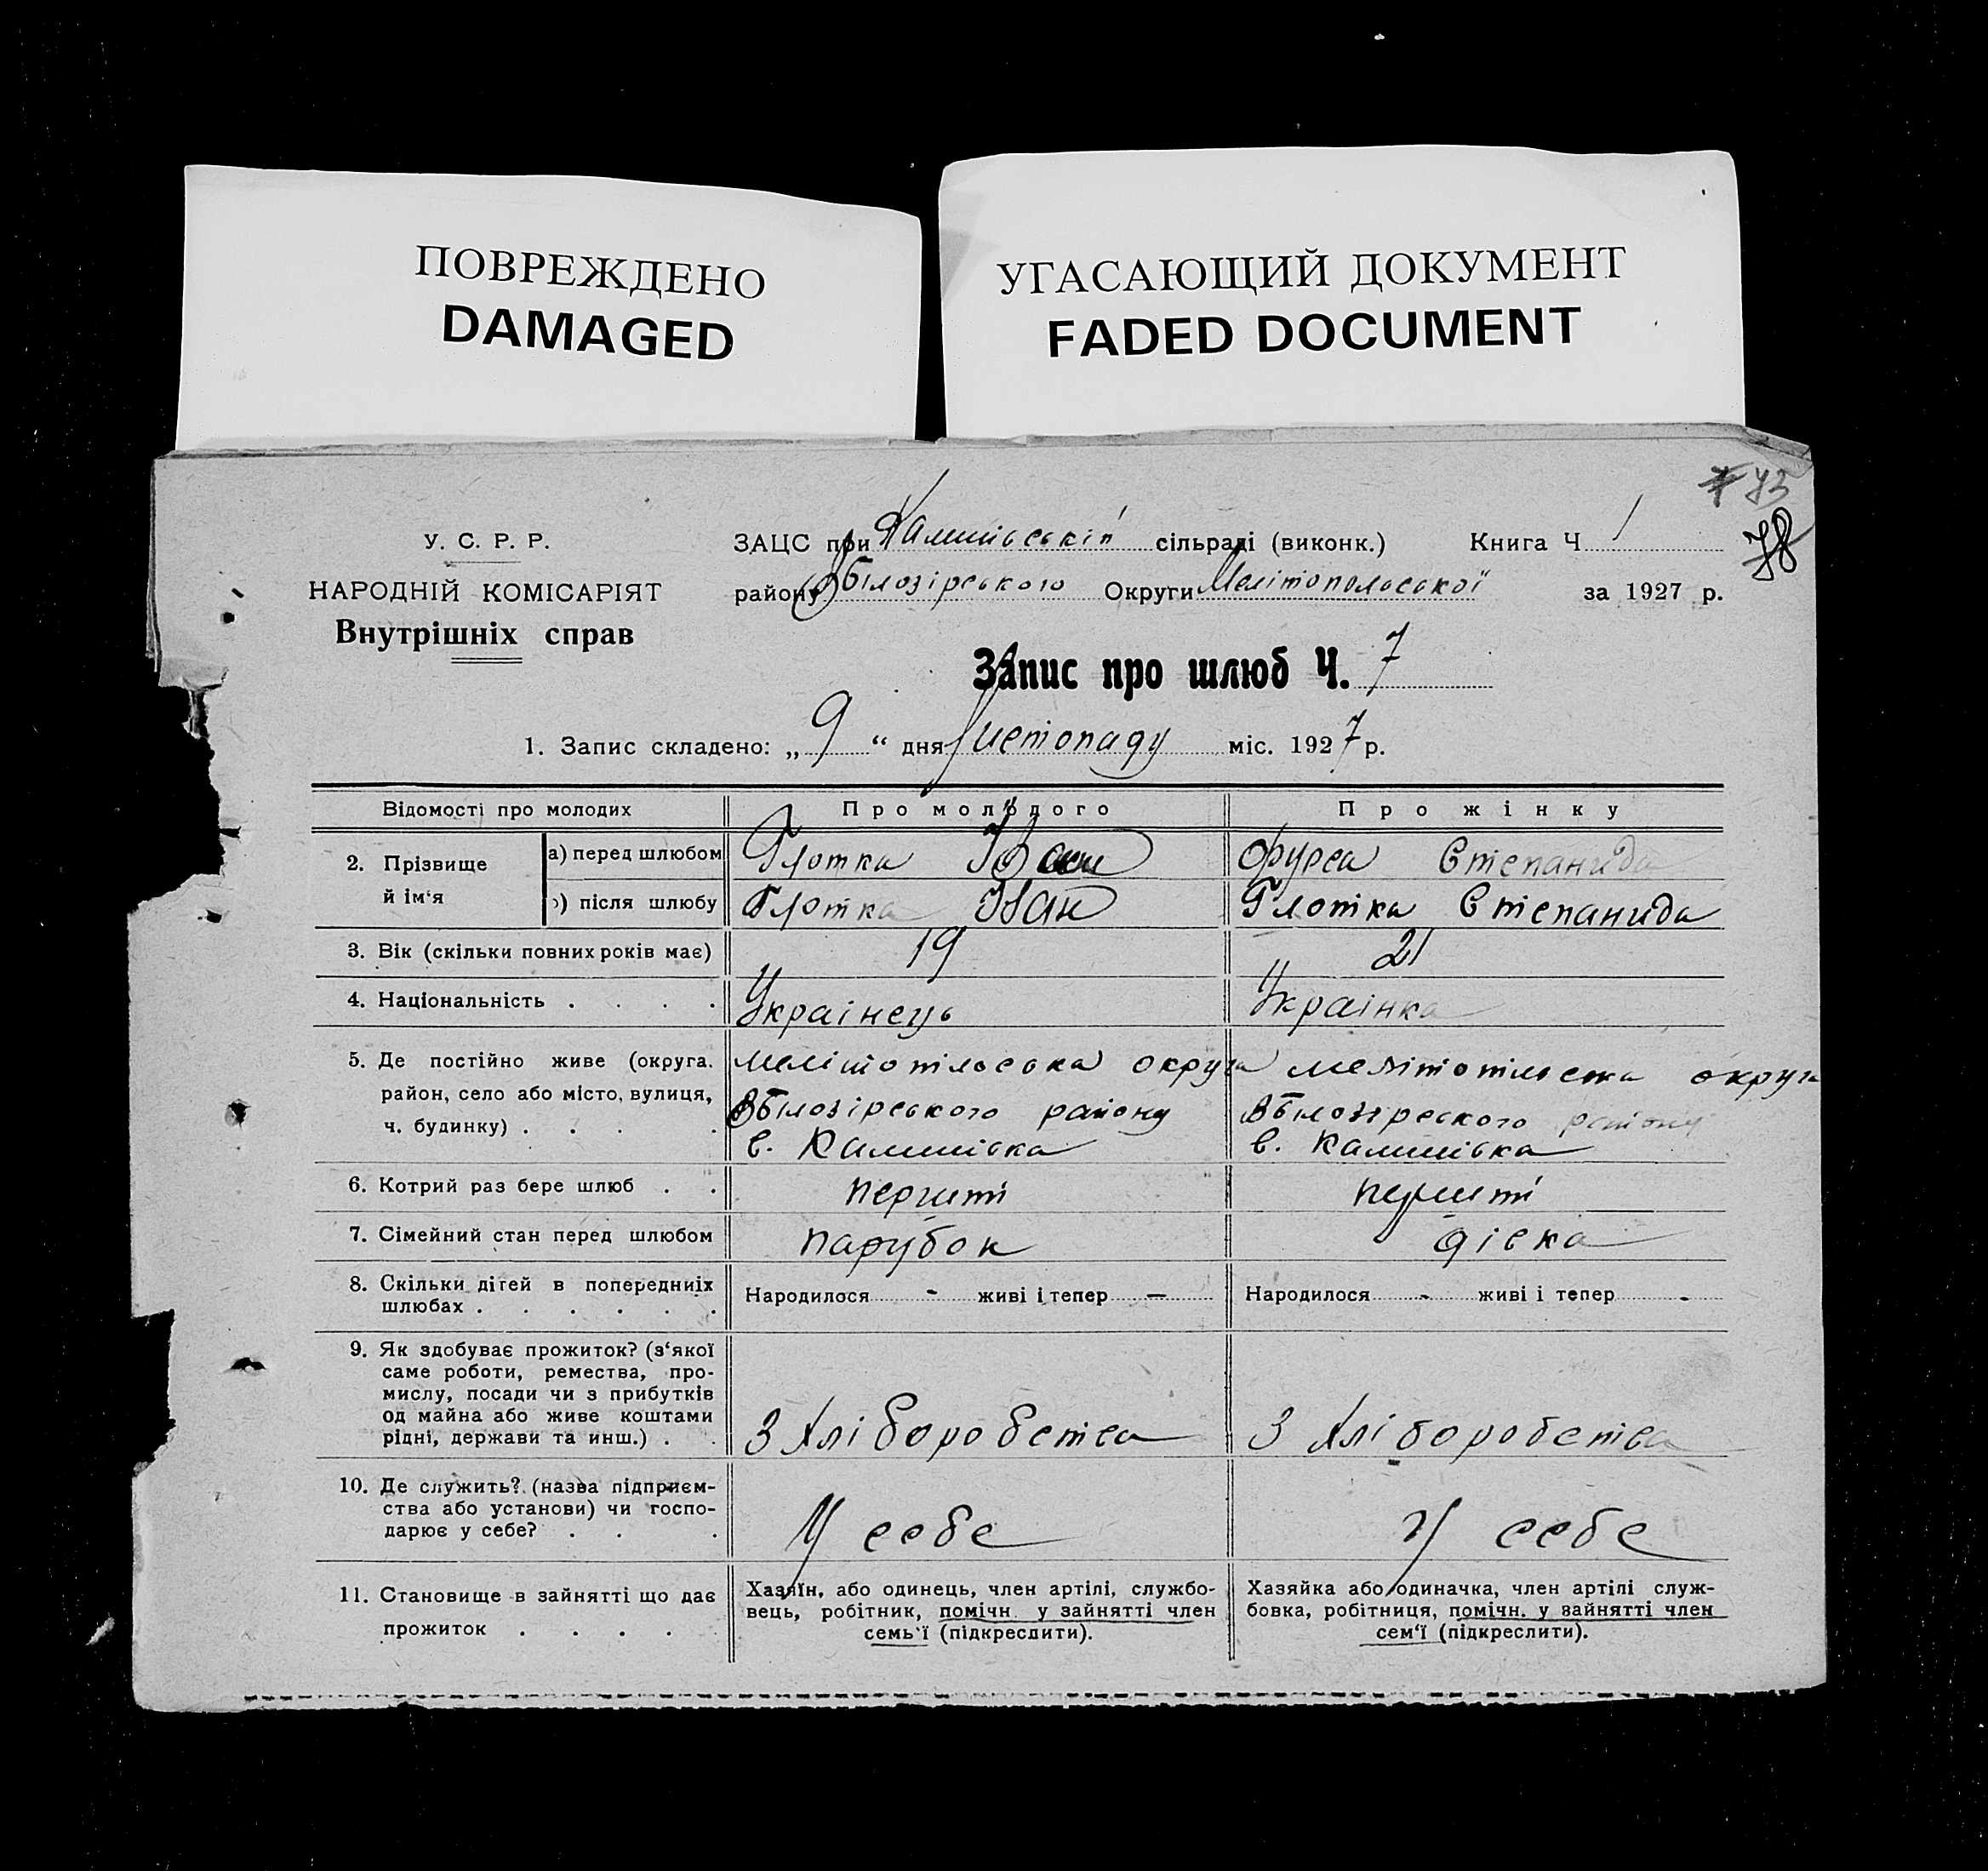 ПОВРЕЖДЕНО
DAMAGED
УГАСАЮЩИЙ ДОКУМЕНТ
FADED DOCUMENT
73
78
У. С. Р. Р.
НАРОДНІЙ КОМІСАРІЯТ
Внутрішніх справ
ЗАЦС при сільраді (виконк.) Книга Ч 1
району Округи Мелітопольської за 1927 р.
Запис про шлюб Ч. 7
1. Запис складено: „ 9 “ дня Листопаду міс. 1927 р.
Відомості про молодих Про молодого Про жінку
2. Прізвище й ім‘я
а) перед шлюбом Глотка Іван Фурса Степанида
б) після шлюбу Глотка Іван Глотка Степанида
3. Вік (скільки повних років має) 19 21
4. Національність . . . . Українець Українка
5. Де постійно живе (округа.
район, село або місто, вулиця,
ч. будинку) . . . .
мелітопільська округа
Вбілозірського району
с. Камишівка
мелітопільска округа
Вбілозірского району
с. Камишівка
6. Котрий раз бере шлюб . . перший перший
7. Сімейний стан перед шлюбом парубок дівка
8. Скільки дітей в попередниіх
шлюбах . . . . . .
Народилося - живі і тепер —
Народилося - живі і тепер -
9. Як здобуває прожиток? (з‘якої
саме роботи, ремества, про-
мислу, посади чи з прибутків
од майна або живе коштами
рідні, держави та инш.) . .
З хліборобства З хліборобства
10. Де служить? (назва підприєм-
ства або установи) чи госпо-
дарює у себе? . . .
У себе У себе
11. Становище в зайнятті що дає
прожиток . . . .
Хазяїн, або одинець, член артілі, службо-
вець, робітник, помічн. у зайнятті член
семь‘ї (підкреслити).
Хазяйка або одиначка, член артілі служ-
бовка, робітниця, помічн. у зайнятті член
сем‘ї (підкреслити).